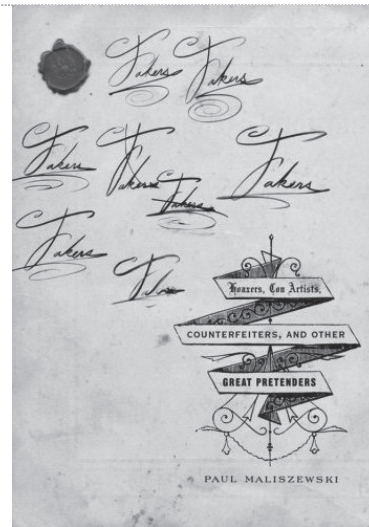 Fakers Fakers
Fakers Fakers Fakers Fakers
Fakers
Hoaxers, Con Artists,
COUNTERFEITERS, AND OTHER
GREAT PRETENDERS
PAUL MALISZEWSKI